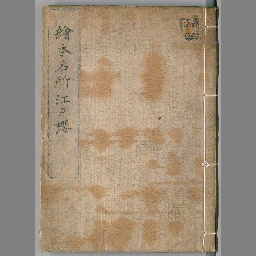 繪本名所江戸櫻